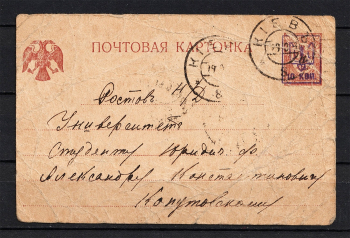 ПОЧТОВАЯ КАРТОЧКА
КІЕВЪ
Ростовъ н/Д
Университетъ
Студенту Юридич. ф.
Александру Константиновичу